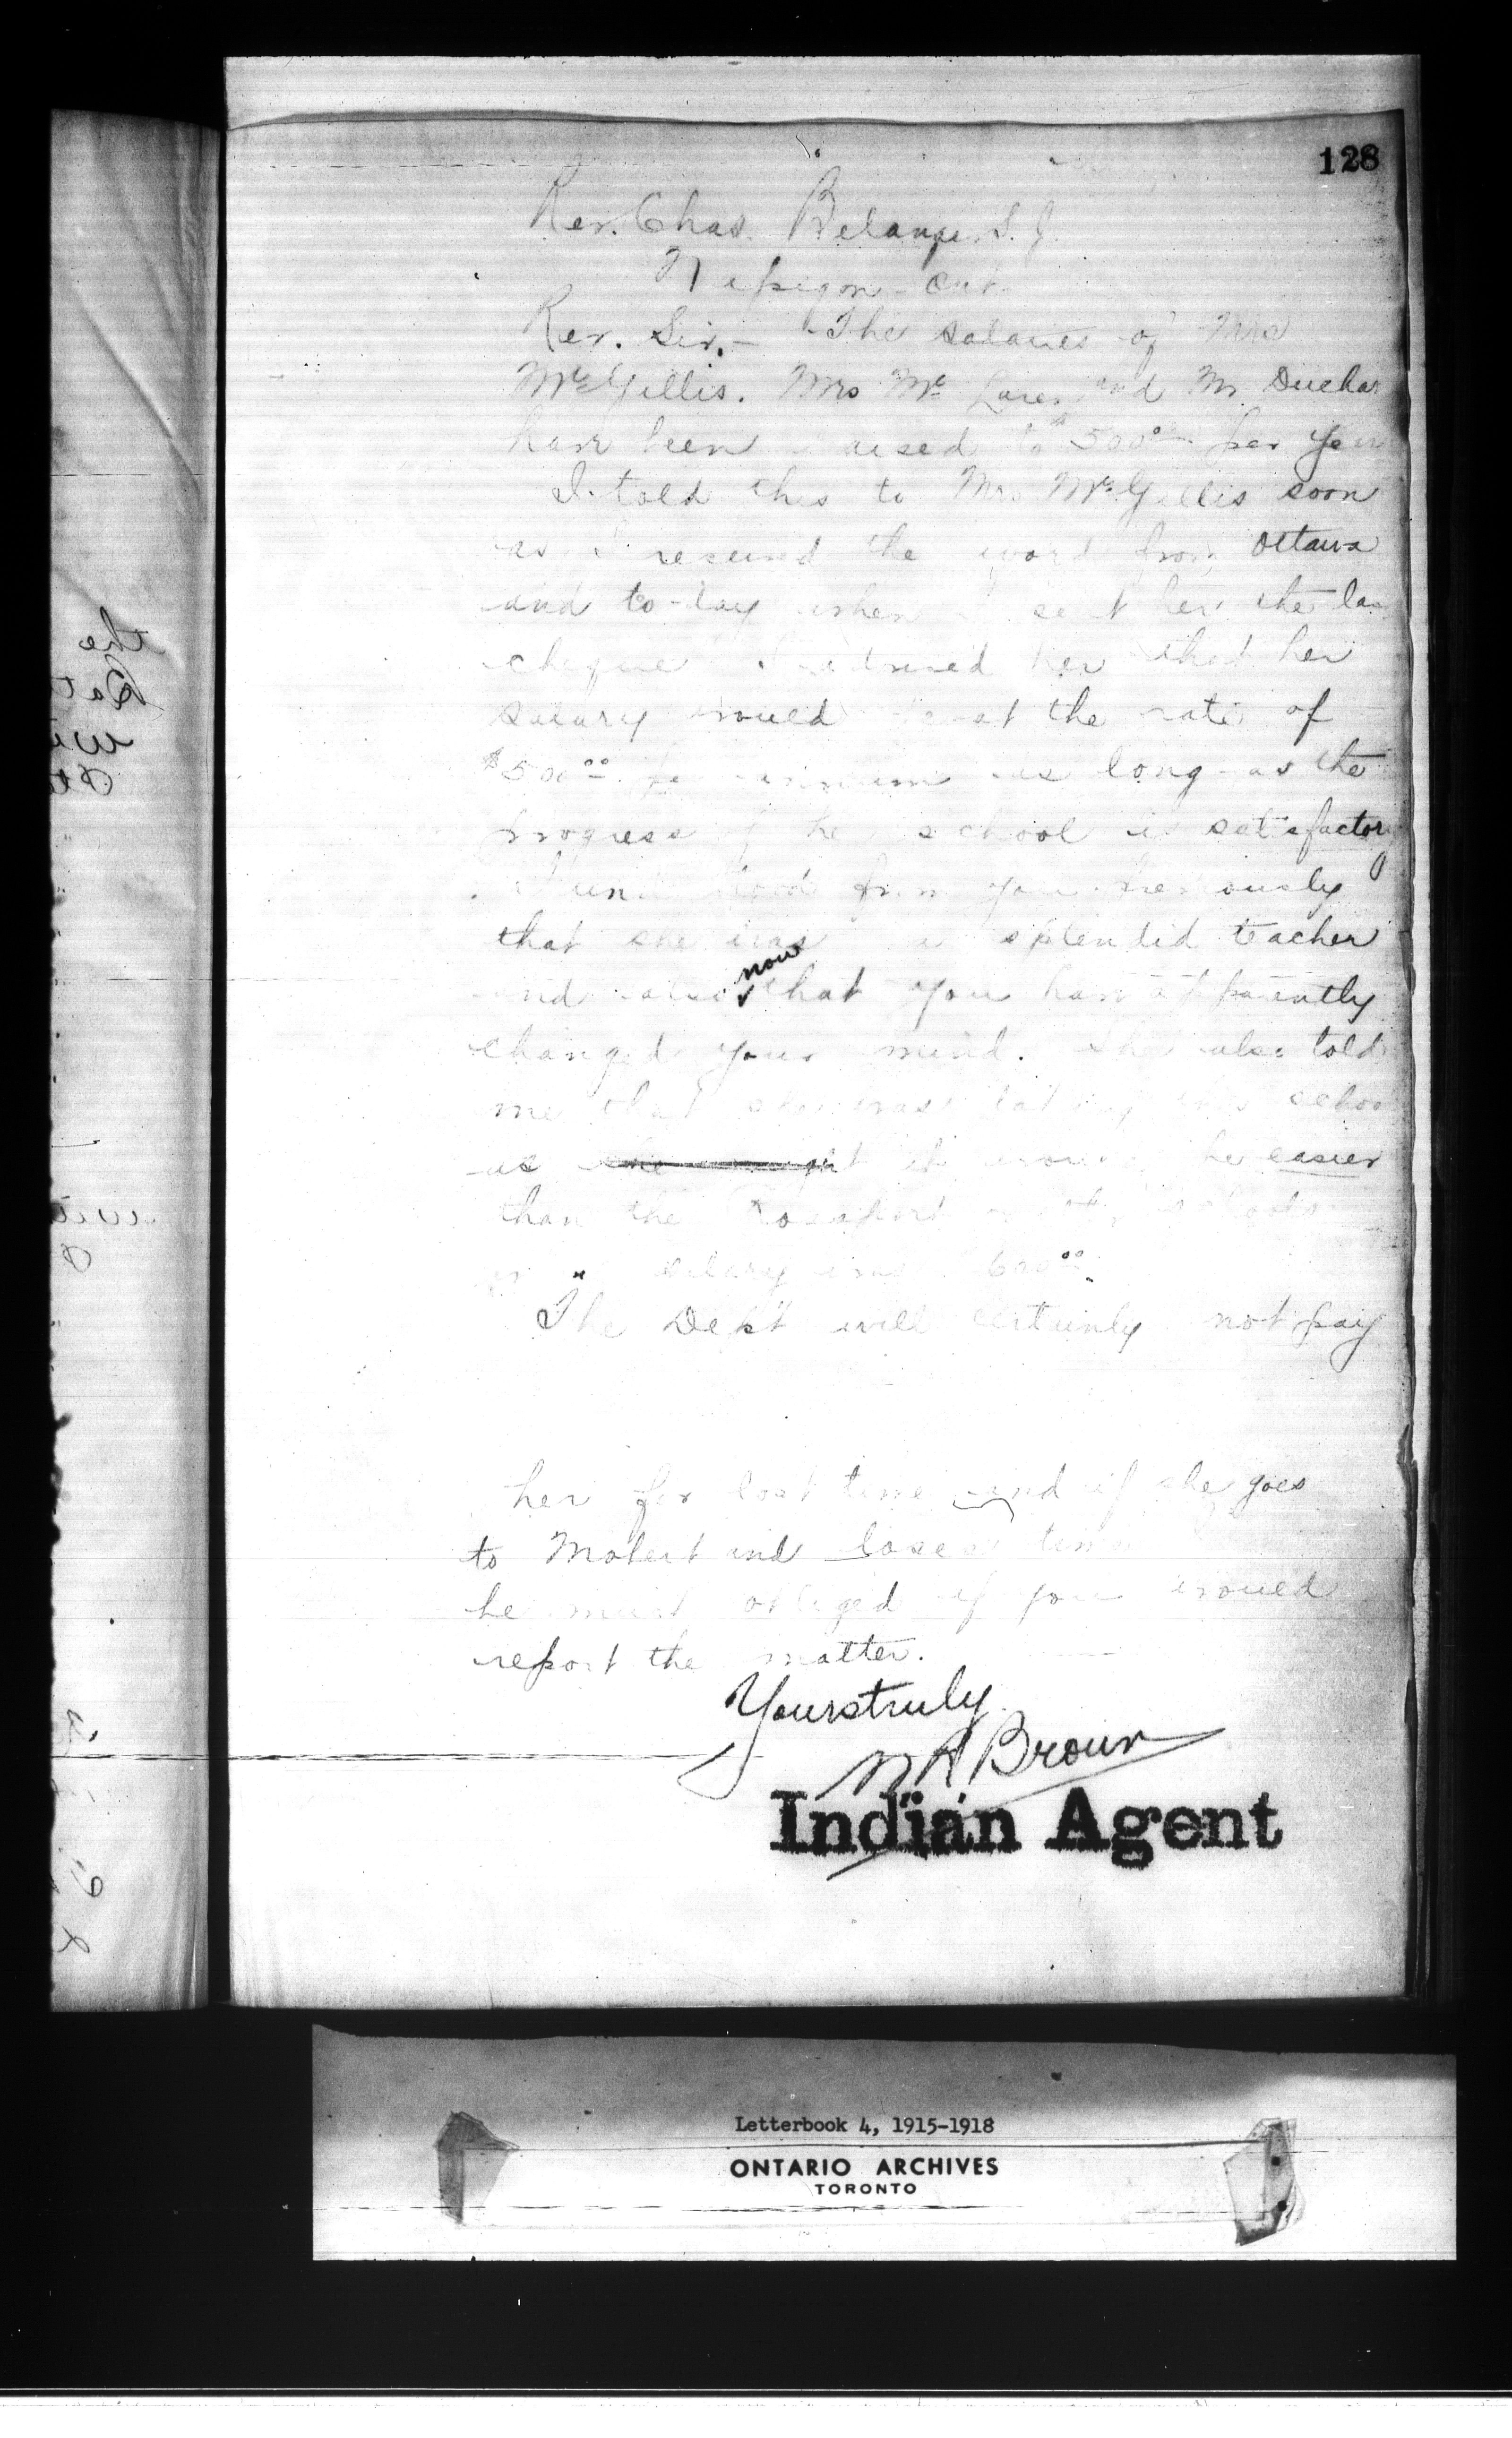 128
Rev. Chas. Belanger S. J.
Nipigon - Ont
Rev. Sir. - The salaries of Mrs
McGillis. Mrs Mc Laren and Mr Duchar
have been raised to $500.00 per year
I told this to Mrs McGillis soon
as I received the word from Ottawa
and to-day when I sent her the
cheque I advised her that her
salary would be at the rate of
$500.00 per annum as long as the
progress of her school is satisfactory
I understood from you previously
that she was a splendid teacher
and also now that you have apparently
changed your mind. She also told
me that she was taking this school
as it would be easier
than the Rossport schools
salary was 600.00.
The Dept will certainly not pay
her for lost time and if she goes
to Mobert and loses time
be much obliged if you would
report the matter.
Yours truly
Brown
Indian Agent
the
Letterbook 4, 1915-1918
ONTARIO ARCHIVES
TORONTO